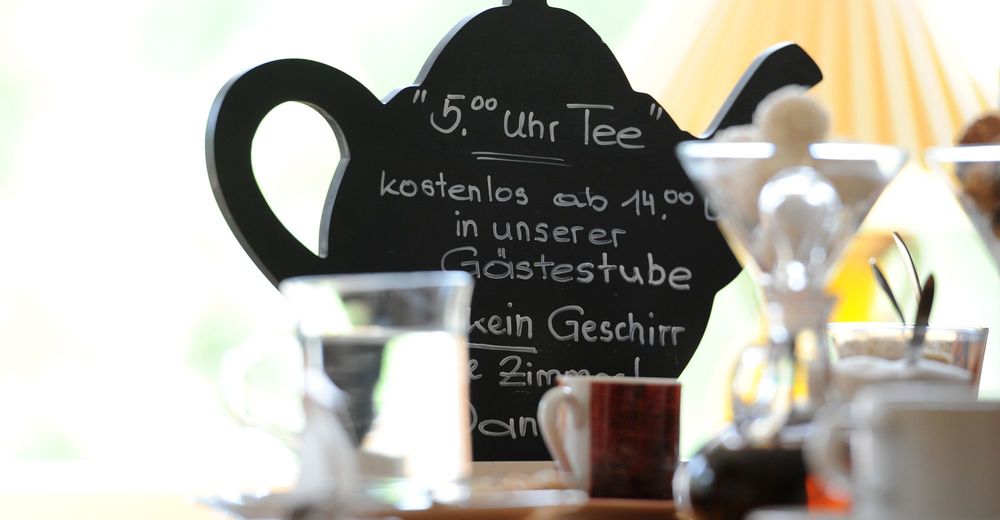 "5.⁰⁰ Uhr Tee"
kostenlos ab 14.⁰⁰
in unserer
Gästestube
kein Geschirr